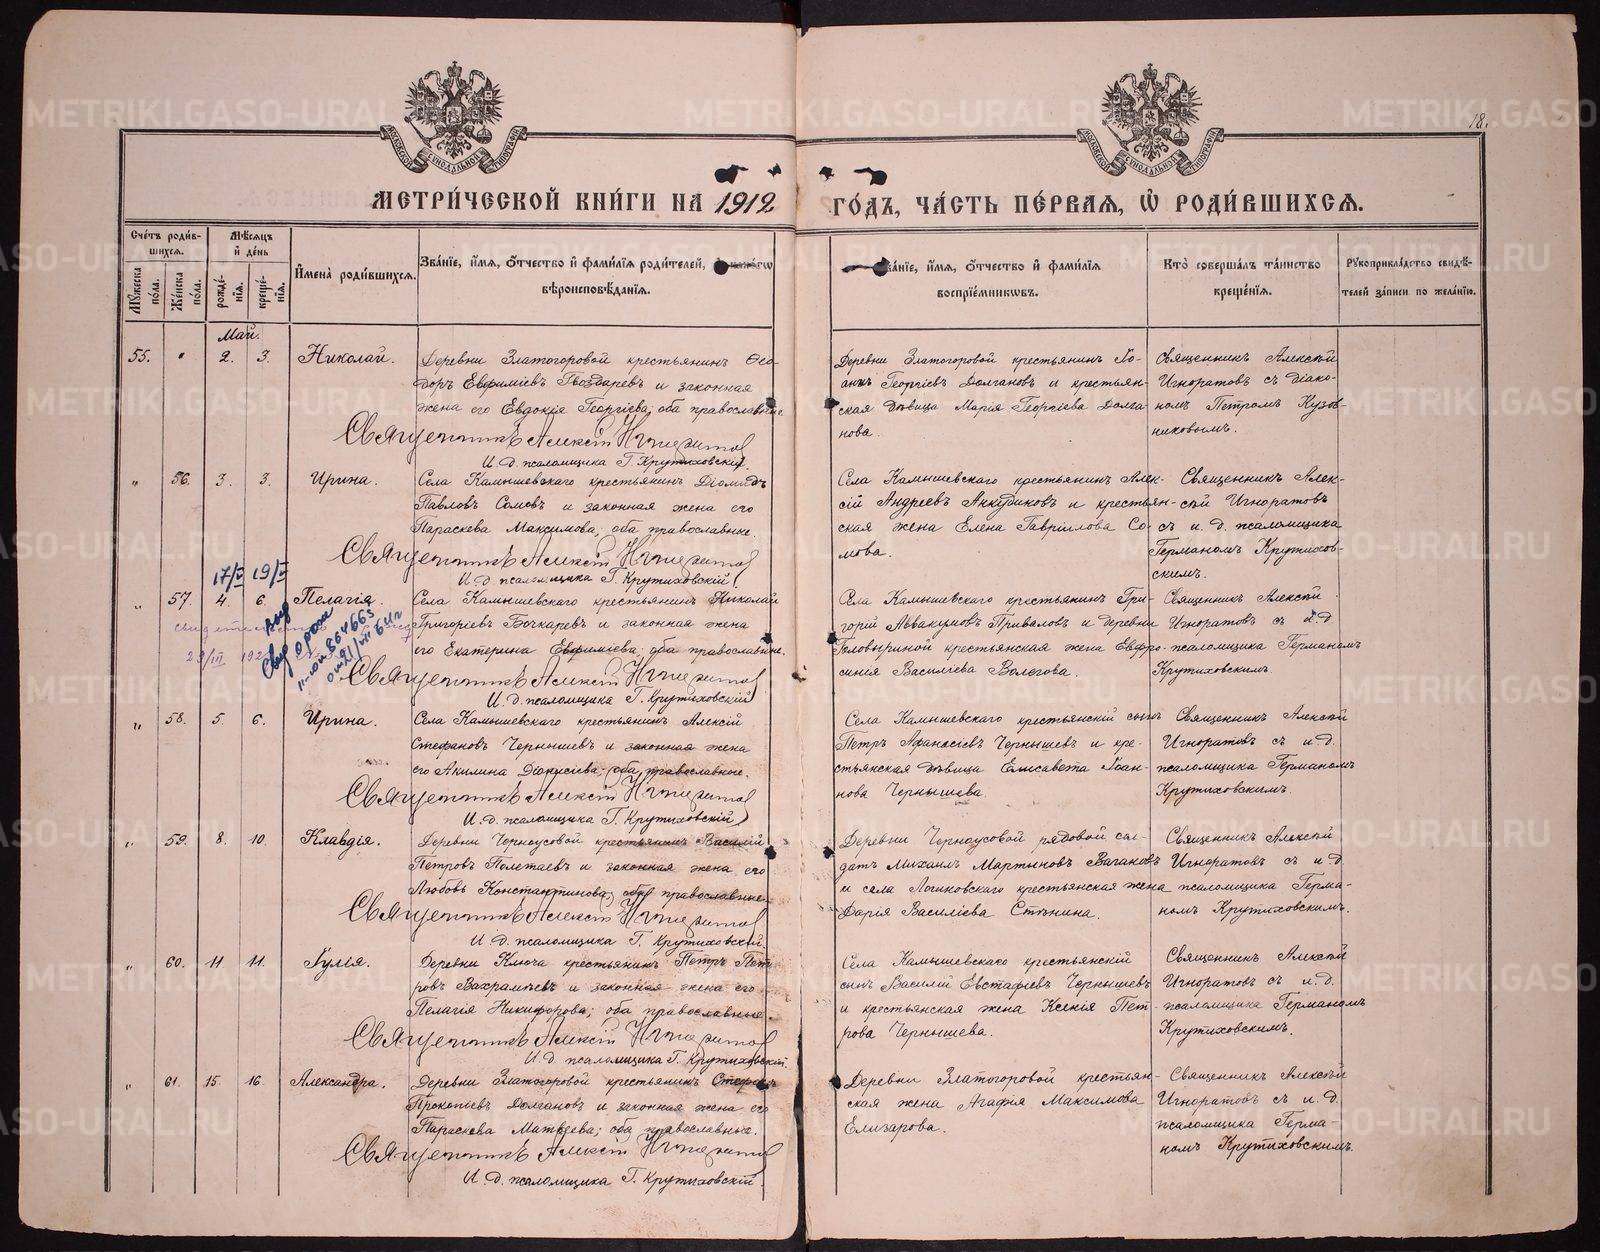 18.
МЕТРИ́ЧЕСКОЙ КНИ́ГИ НА 1912 ГО́ДЪ, ЧА́СТЬ ПЕ́РВАЯ, Ѿ РОДИ́ВШИХСЯ.
Сче́тъ роди́в-
шихся.
Му́жеска по́ла.
Же́нска по́ла.
Мѣ́сяцъ
и҆ де́нь
рожде́-
нія.
креще́-
нія.
И҆мена̀ роди́вшихся.
Зва́нїе, и҆́мя, ѻ҆́тчество и҆ фами́лїя роди́телей,
вѣроисповѣ́данїя.
Зва́нїе, и҆́мя, ѻ҆́тчество и҆ фами́лїя
воспрїе́мникѡвъ.
Кто̀ соверша́лъ та́инство
креще́нїя.
Рꙋкоприкла́дство свидѣ́-
телей за́писи по жела́нїю.
Май.
55. " 2. 3. Николай.
Деревни Златогоровой крестьянинъ Ѳео-
доръ Евфиміевъ Гвоздаревъ и законная
жена его Евдокія Георгіева; оба православные.
Священникъ Алексій Игноратов
И. д. псаломщика Г. Крутиховскій.
Деревни Златогоровой крестьянинъ Іо-
аннъ Георгіевъ Долгановъ и крестьян-
ская дѣвица Марія Георгіева Долга-
нова.
Священникъ Алексѣй
Игноратовъ съ діако-
номъ Петромъ Кузов-
никовымъ.
" 56. 3. 3. Ирина.
Села Камышевскаго крестьянинъ Діомидъ
Павловъ Сомовъ и законная жена его
Параскева Максимова; оба православные.
Священникъ Алексій Игноратов
И. д. псаломщика Г. Крутиховскій.
Села Камышевскаго крестьянинъ Алек-
сій Андреевъ Анкудиновъ и крестьян-
ская жена Елена Гавріилова Со-
мова.
Священникъ Алек-
сѣй Игноратовъ
съ и. д. псаломщика
Германомъ Крутихов-
скимъ.
17/V 19/V
" 57. 4. 6. Пелагія.
Села Камышевскаго крестьянинъ Николай
Григоріевъ Бочкаревъ и законная жена
его Екатерина Евфиміева; оба православные.
Священникъ Алексій Игноратов
И. д. псаломщика Г. Крутиховскій
Села Камышевскаго крестьянинъ Гри-
горій Аввакумовъ Приваловъ и деревни
Головыриной крестьянская жена Евфро-
синія Василіева Волегова.
Священникъ Алексѣй
Игноратовъ съ и. д.
псаломщика Германомъ
Крутиховскимъ.
" 58. 5. 6. Ирина.
Села Камышевскаго крестьянинъ Алексій
Стефановъ Чернышевъ и законная жена
его Акилина Діонисіева; оба православные.
Священникъ Алексій Игноратов
И. д. псаломщика Г. Крутиховскій
Села Камышевскаго крестьянскій сынъ
Петръ Афанасіевъ Чернышевъ и кре-
стьянская дѣвица Елисавета Іоан-
нова Чернышева.
Священникъ Алексѣй
Игноратовъ съ и. д.
псаломщика Германомъ
Крутиховскимъ.
" 59. 8. 10. Клавдія.
Деревни Черноусовой крестьянинъ Василій
Петровъ Полетаевъ и законная жена его
Любовь Константинова; оба православные.
Священникъ Алексій Игноратов
И. д. псаломщика Г. Крутиховскій.
Деревни Черноусовой рядовой сол-
датъ Михаилъ Мартыновъ Вагановъ
и села Логиновскаго крестьянская жена
Дарія Василіева Стѣнина.
Священникъ Алексѣй
Игноратовъ съ и д
псаломщика Герма-
номъ Крутиховскимъ.
" 60. 11. 11. Іулія.
Деревни Ключа крестьянинъ Петръ Пет-
ровъ Вахрамѣевъ и законная жена его
Пелагія Никифорова; оба православные.
Священникъ Алексій Игноратов
И. д. псаломщика Г. Крутиховскій.
Села Камышевскаго крестьянскій
сынъ Василій Евстафіевъ Чернышевъ
и крестьянская жена Ксенія Пет-
рова Чернышева.
Священникъ Алексѣй
Игноратовъ съ и. д.
псаломщика Германомъ
Крутиховскимъ.
" 61. 15. 16. Александра.
Деревни Златогоровой крестьянинъ
Прокопіевъ Долгановъ и законная жена его
Параскева Матвеева; оба православные.
Священникъ Алексій Игноратов
И. д. псаломщика Г. Крутиховскій.
Деревни Златогоровой крестьян-
ская жена Агафія Максимова
Елизарова.
Священникъ Алексѣй
Игноратовъ съ и. д.
псаломщика Герма-
номъ Крутиховскимъ.
METRIKI.GASO-URAL.RU